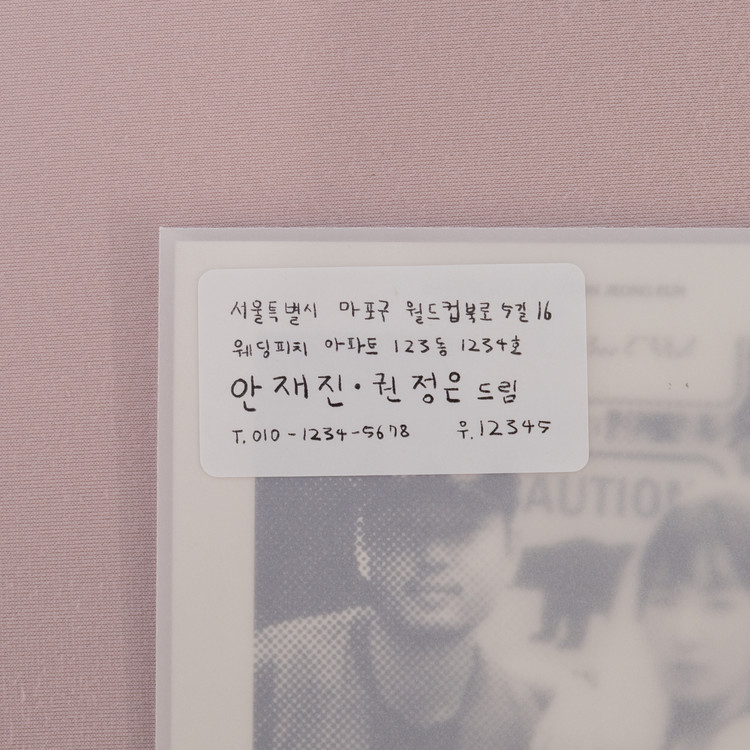 서울특별시 마포구 월드컵북로 5길 16
웨딩피치 아파트 123동 1234호
안재진·권정은 드림
T. 010-1234-5678 우. 12345
AUTION